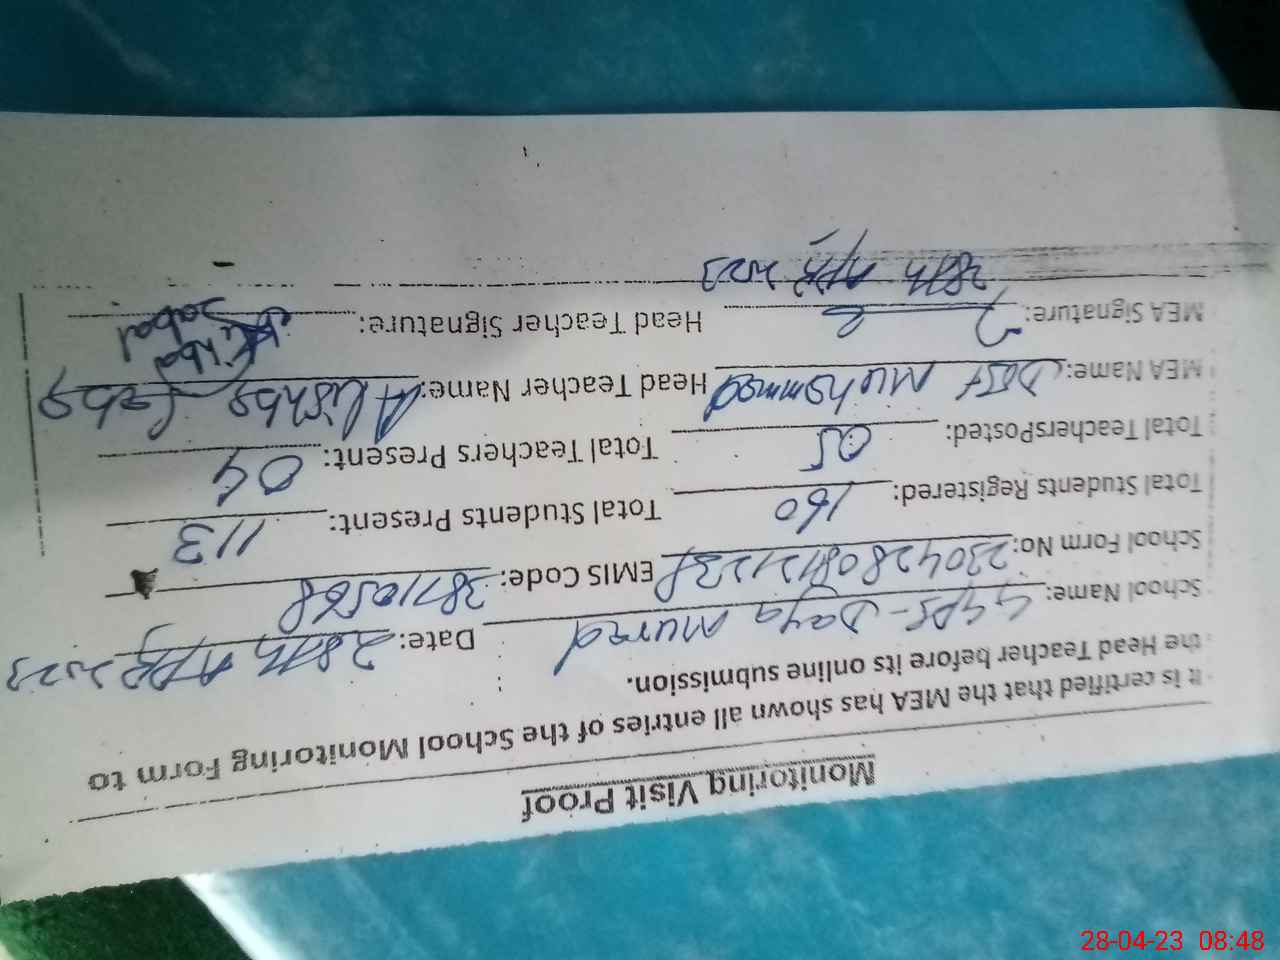 Monitoring Visit Proof
It is certified that the MEA has shown all entries of the School Monitoring Form to
the Head Teacher before its online submission.
School Name: GGPS-Daya Murad Date: 28th APR 2023
School Form No: EMIS Code:
Total Students Registered: 160 Total Students Present: 113
Total TeachersPosted: 05 Total Teachers Present: 04
MEA Name: Dost Muhammad Head Teacher Name: Alishba
MEA Signature: Head Teacher Signature:
28th APR 2023
28-04-23 08:48